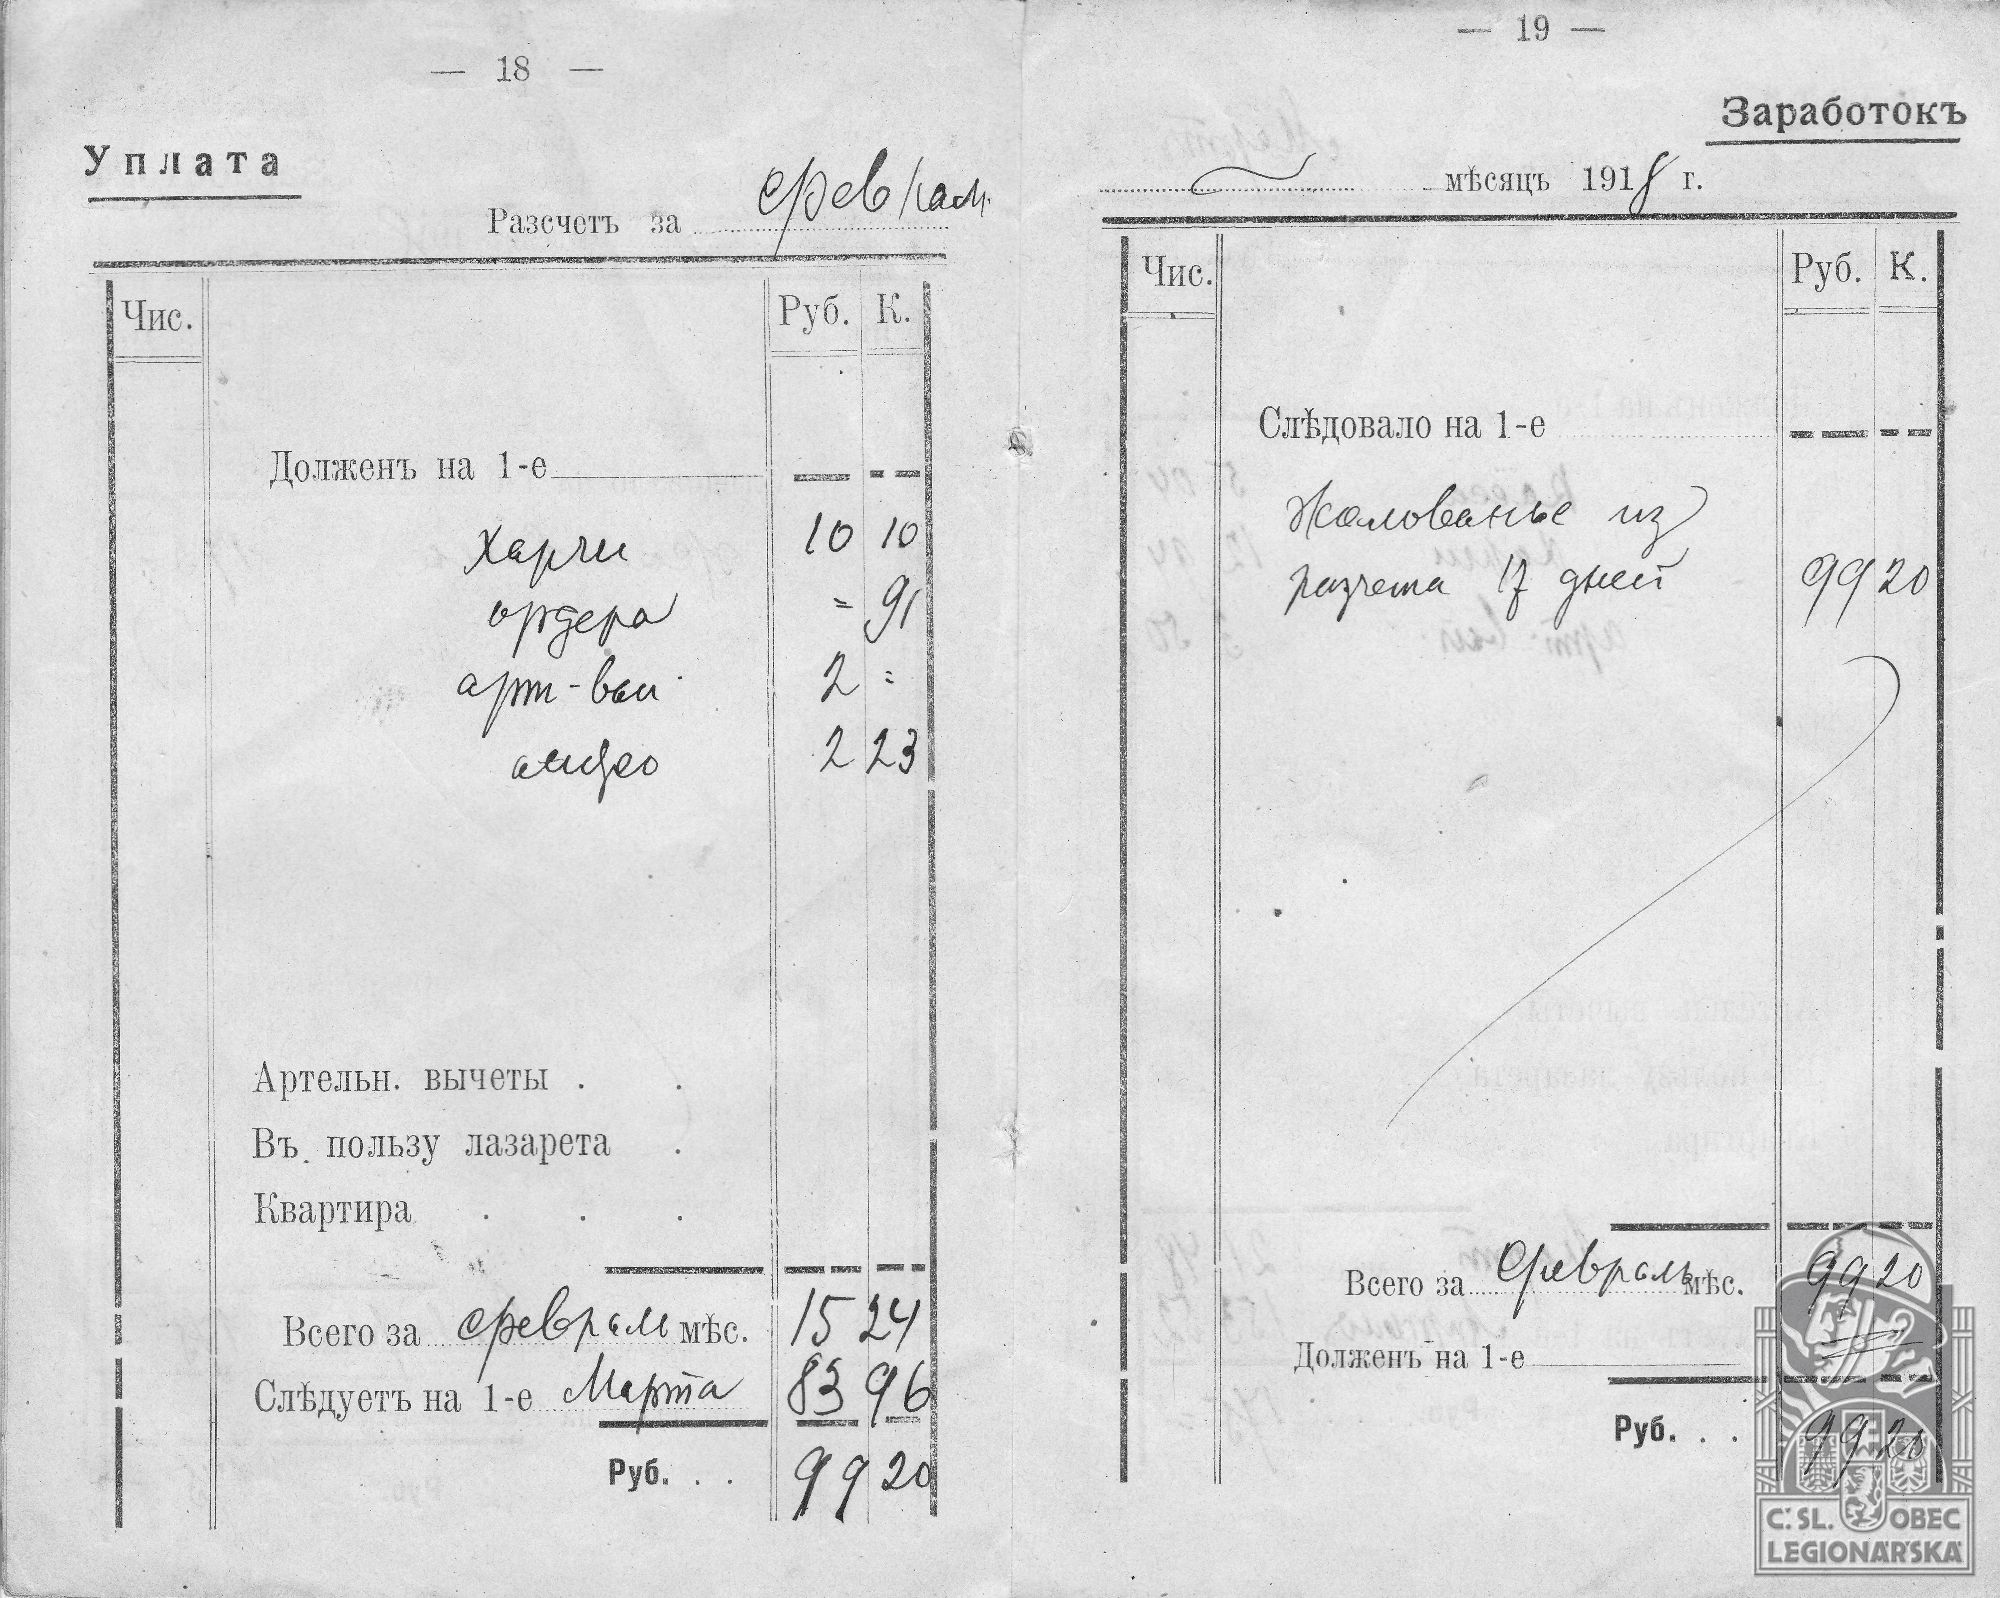 — 18 —
Уплата
Разсчетъ за февраль
Чис.
Руб. К.
Долженъ на 1-е
Харчи 10 10
ордера = 91
арт-вы 2 =
2 23
Артельн. вычеты . .
Въ пользу лазарета .
Квартира . . .
Всего за февраль мѣс. 15 24
Слѣдуетъ на 1-е Марта 83 96
Руб. . . 99 20
— 19 —
Заработокъ
мѣсяцъ 1918 г.
Чис.
Руб. К.
Слѣдовало на 1-е
Жалованье из
разчета 17 дней 99 20
Всего за февраль мѣс. 99 20
Долженъ на 1-е
Руб. . . 99 20
Č. SL. OBEC
LEGIONÁŘSKÁ